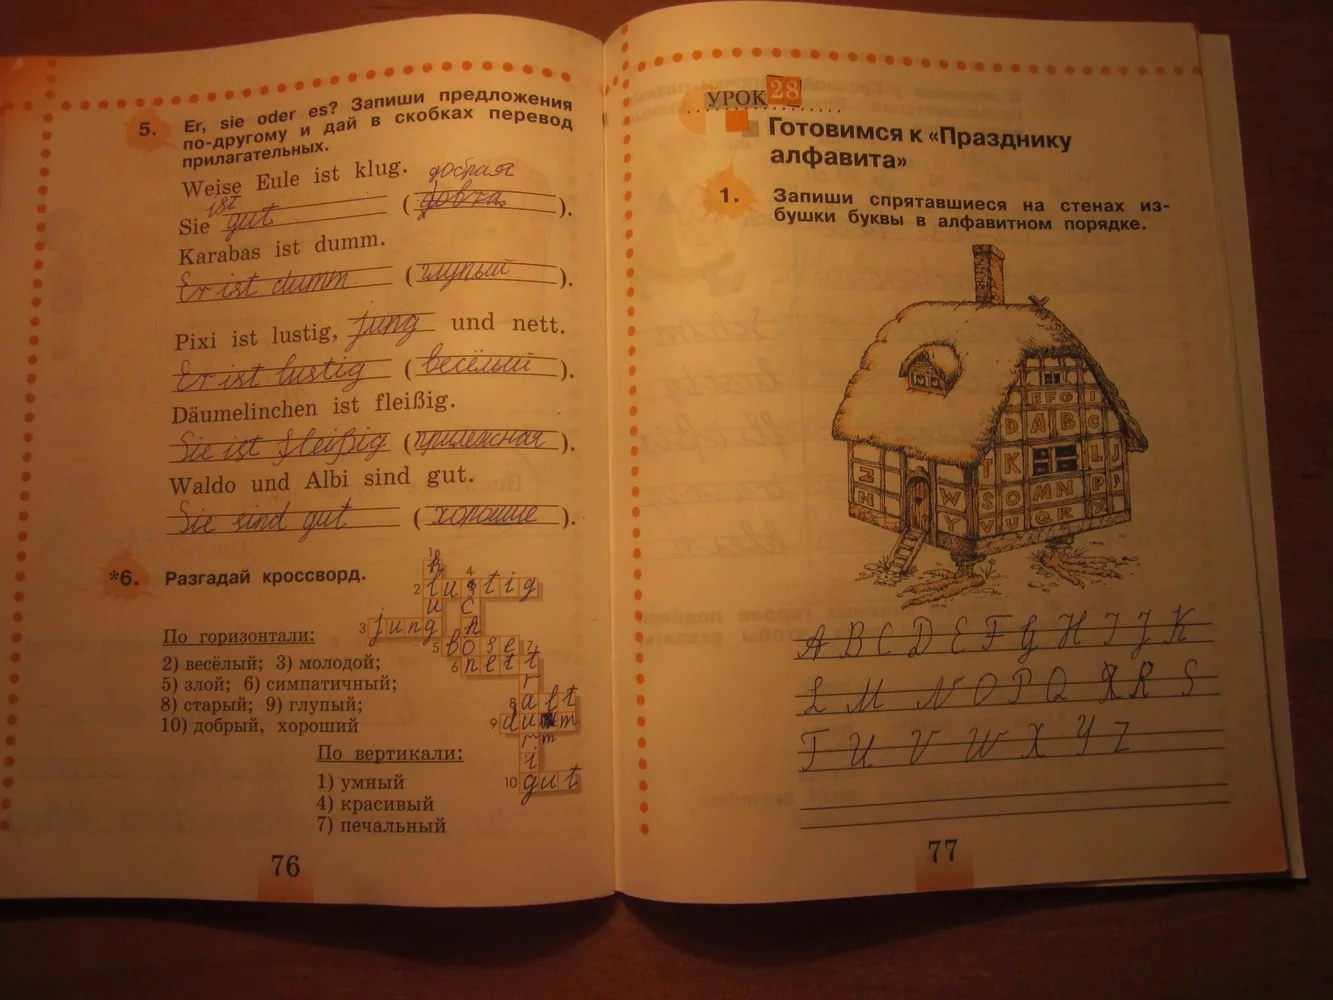 5. Er, sie oder es? Запиши предложения
по-другому и дай в скобках перевод
прилагательных.
Weise Eule ist klug. добрая
ist
Sie gut ( ).
Karabas ist dumm.
Er ist dumm (глупый).
Pixi ist lustig, jung und nett.
Er ist lustig (весёлый).
Däumelinchen ist fleißig.
Sie ist fleißig (прилежная).
Waldo und Albi sind gut.
Sie sind gut (хорошие).
*6. Разгадай кроссворд.
1 k
2 lustig 4
u c
3 jung h
5 böse 7
6 nett t
r
8 alt
9 dumm
r m
i
10 gut
По горизонтали:
2) весёлый; 3) молодой;
5) злой; 6) симпатичный;
8) старый; 9) глупый;
10) добрый, хороший
По вертикали:
1) умный
4) красивый
7) печальный
76
УРОК 28
Готовимся к «Празднику
алфавита»
1. Запиши спрятавшиеся на стенах из-
бушки буквы в алфавитном порядке.
E F G I
D A B C
T K L J
Z W S O M N P ß
H Y V U Q R X
A B C D E F G H I J K
L M N O P Q R S
T U V W X Y Z
77